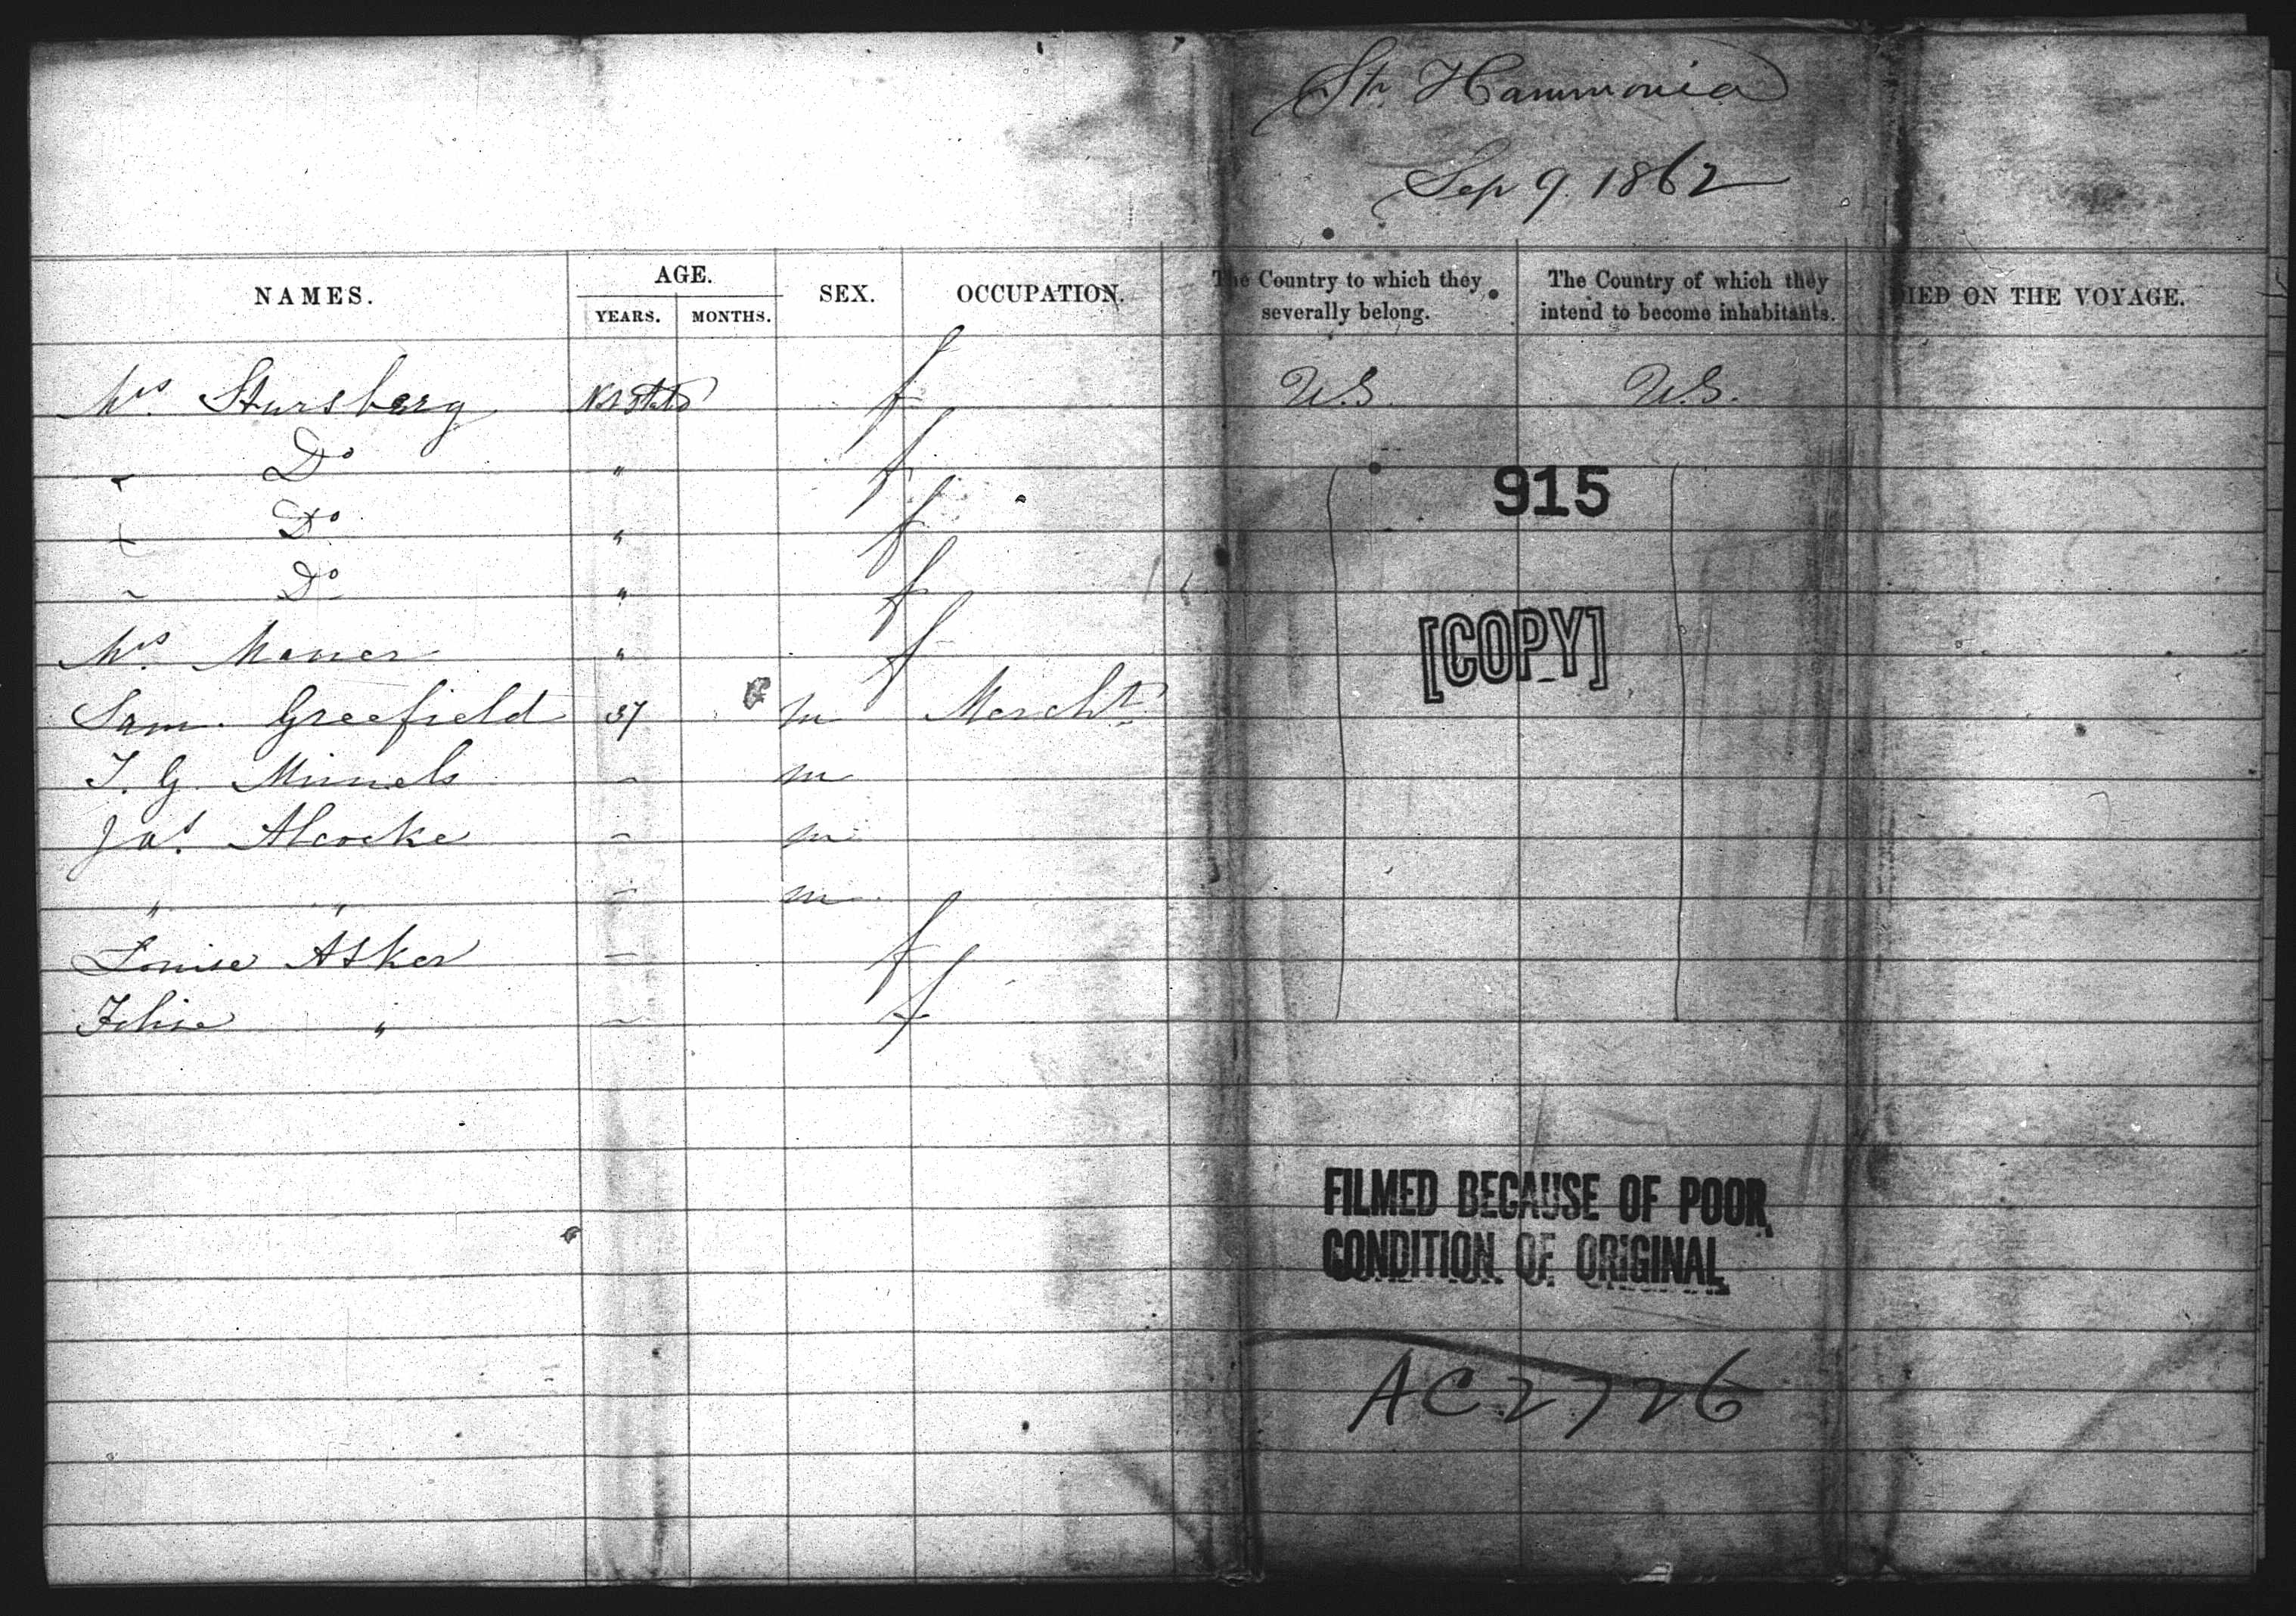 Str. Hammonia
Sep 9. 1862
NAMES. AGE. YEARS. MONTHS. SEX. OCCUPATION. The Country to which they severally belong. The Country of which they intend to become inhabitants. DIED ON THE VOYAGE.
Mrs. Stursberg Not Stated f U.S. U.S.
" Do " f
" Do " f
" Do " f
Mrs. " f
Sam. Greefield 37 m Mercht.
T. G. Minnels - m
Jas. Alcocke - m
" " - m
Louise Asker - f
Felise " - f
915
[COPY]
FILMED BECAUSE OF POOR
CONDITION OF ORIGINAL
AC 2726